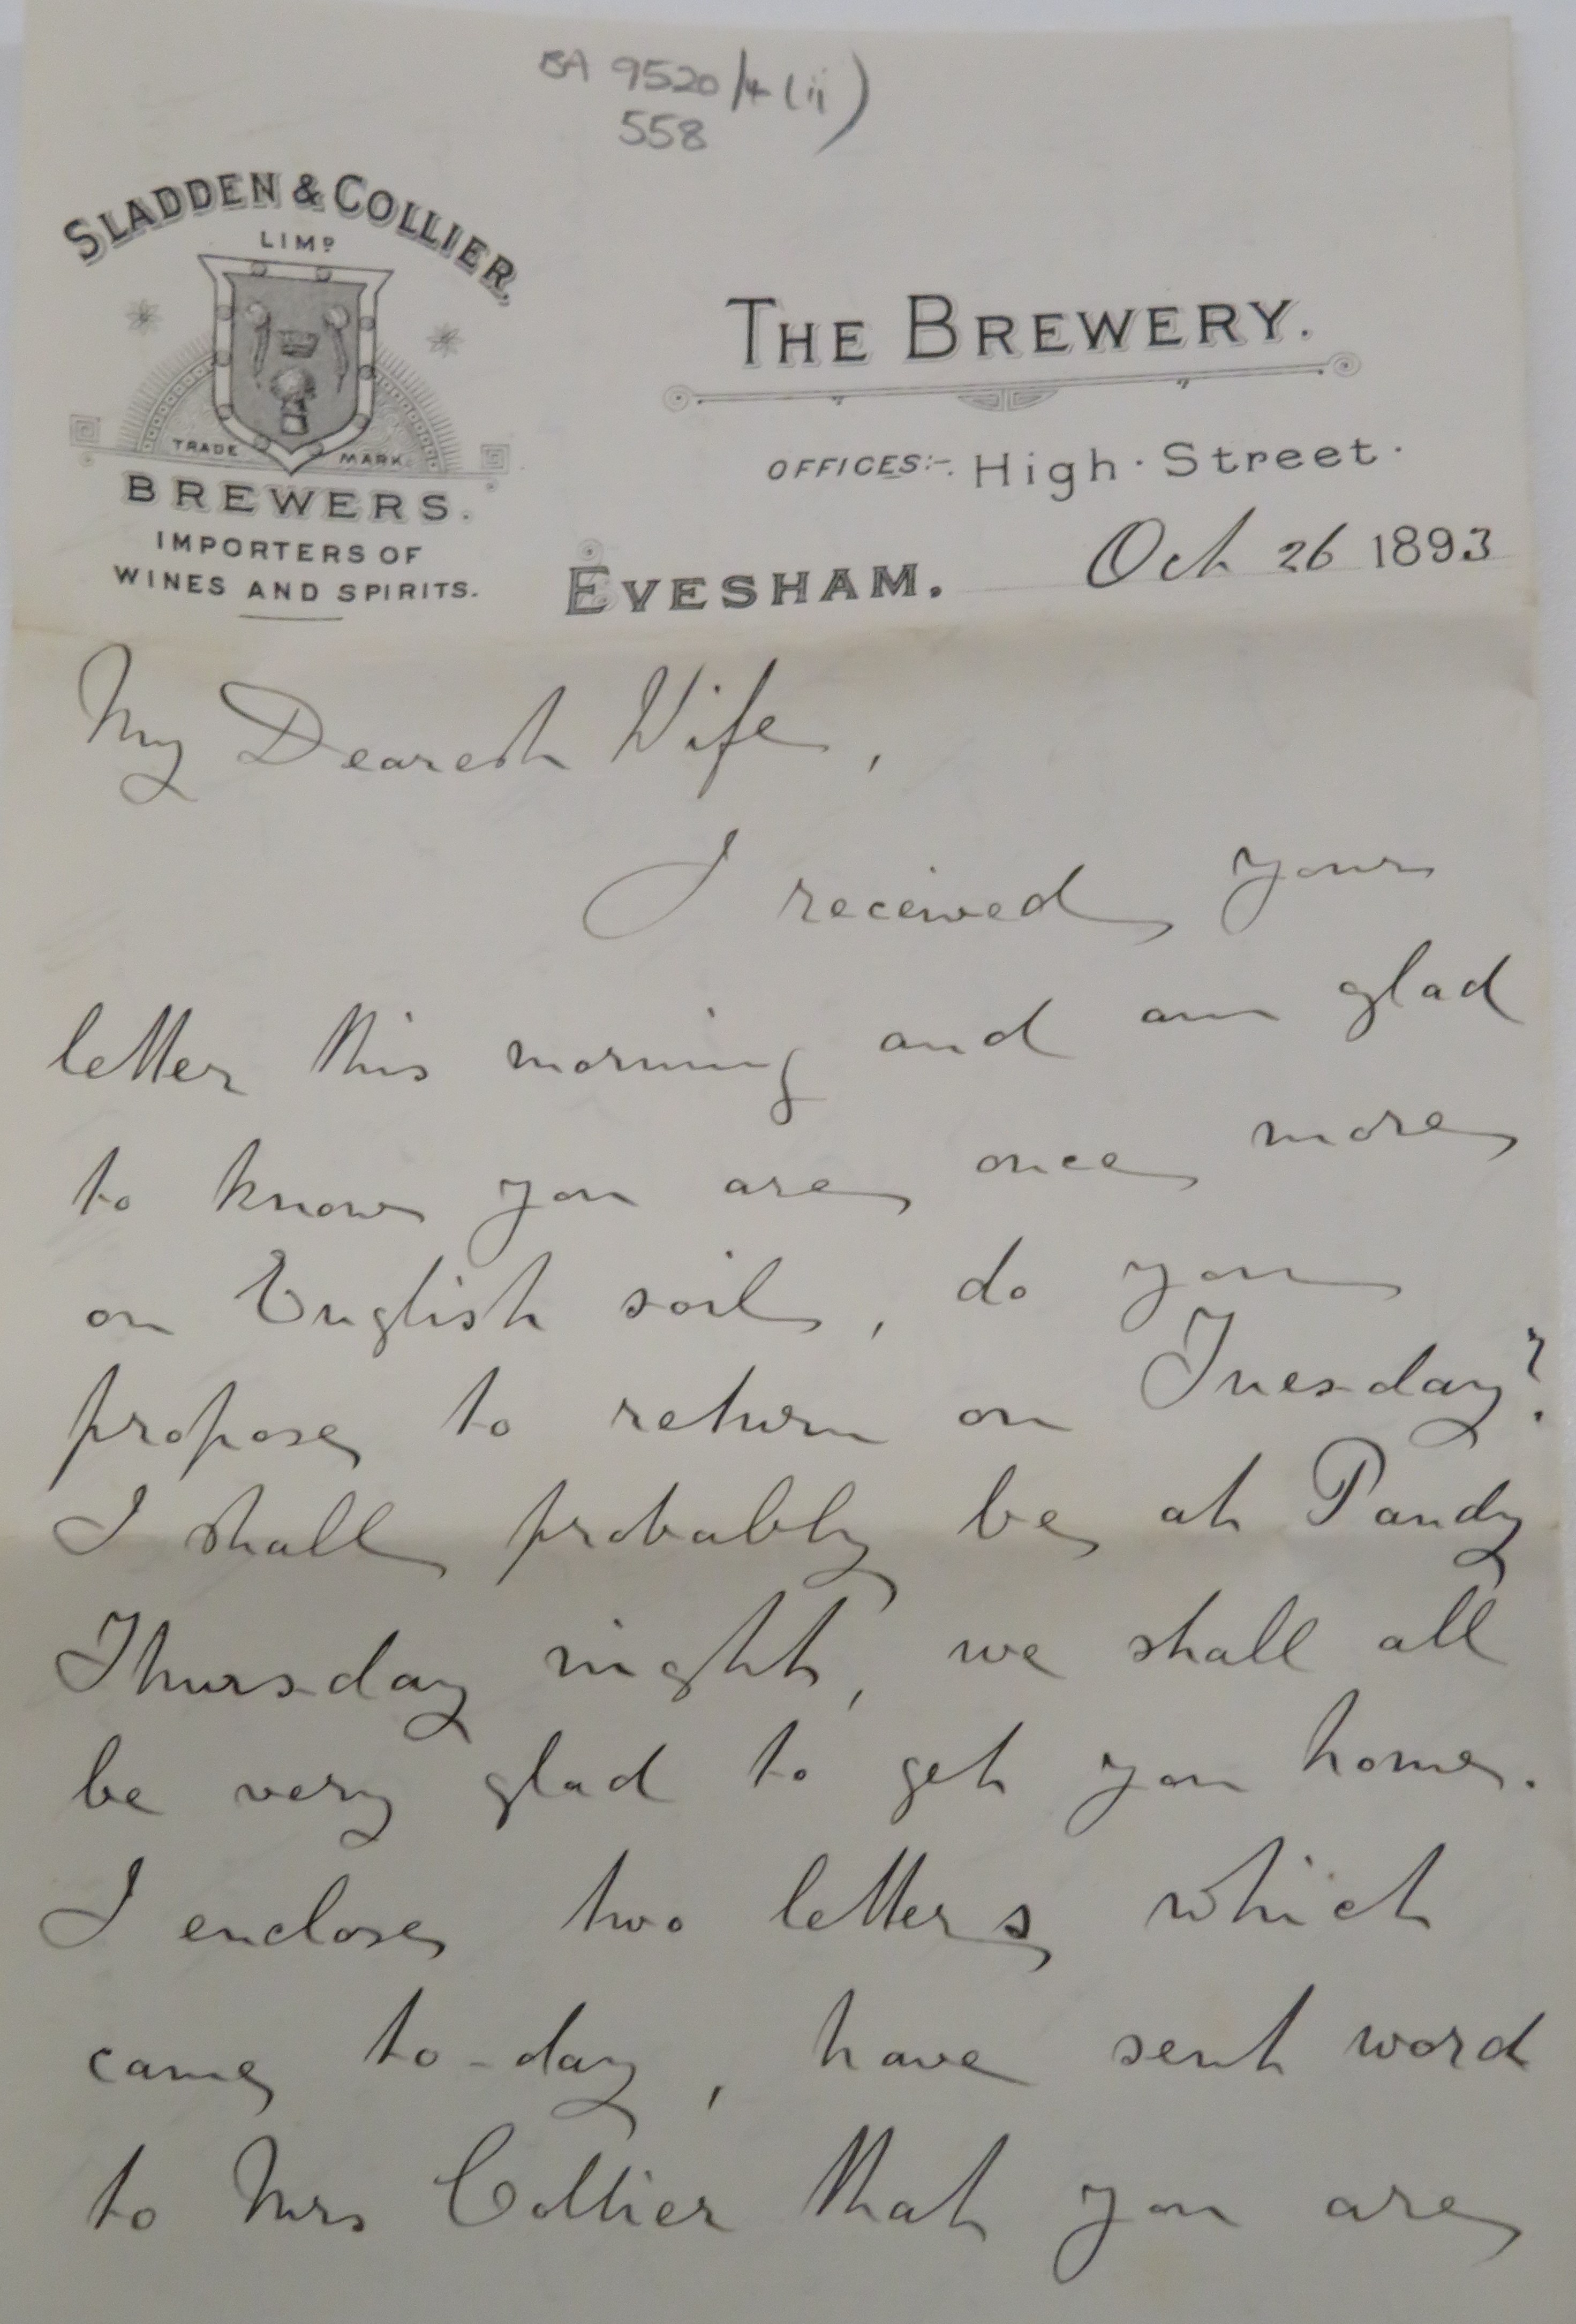 BA 9520/4 (ii)
558
SLADDEN & COLLIER.
LIMD
TRADE MARK.
BREWERS.
IMPORTERS OF
WINES AND SPIRITS.
THE BREWERY.
OFFICES:-. High · Street ·
EVESHAM. Oct 26 1893
My Dearest Wife,
I received your
letter this morning and am glad
to know you are once more
on English soil, do you
propose to return on Tuesday?
I shall probably be at Pandy
Thursday night, we shall all
be very glad to get you home.
I enclose two letters which
came to-day, have sent word
to Mrs Collier that you are